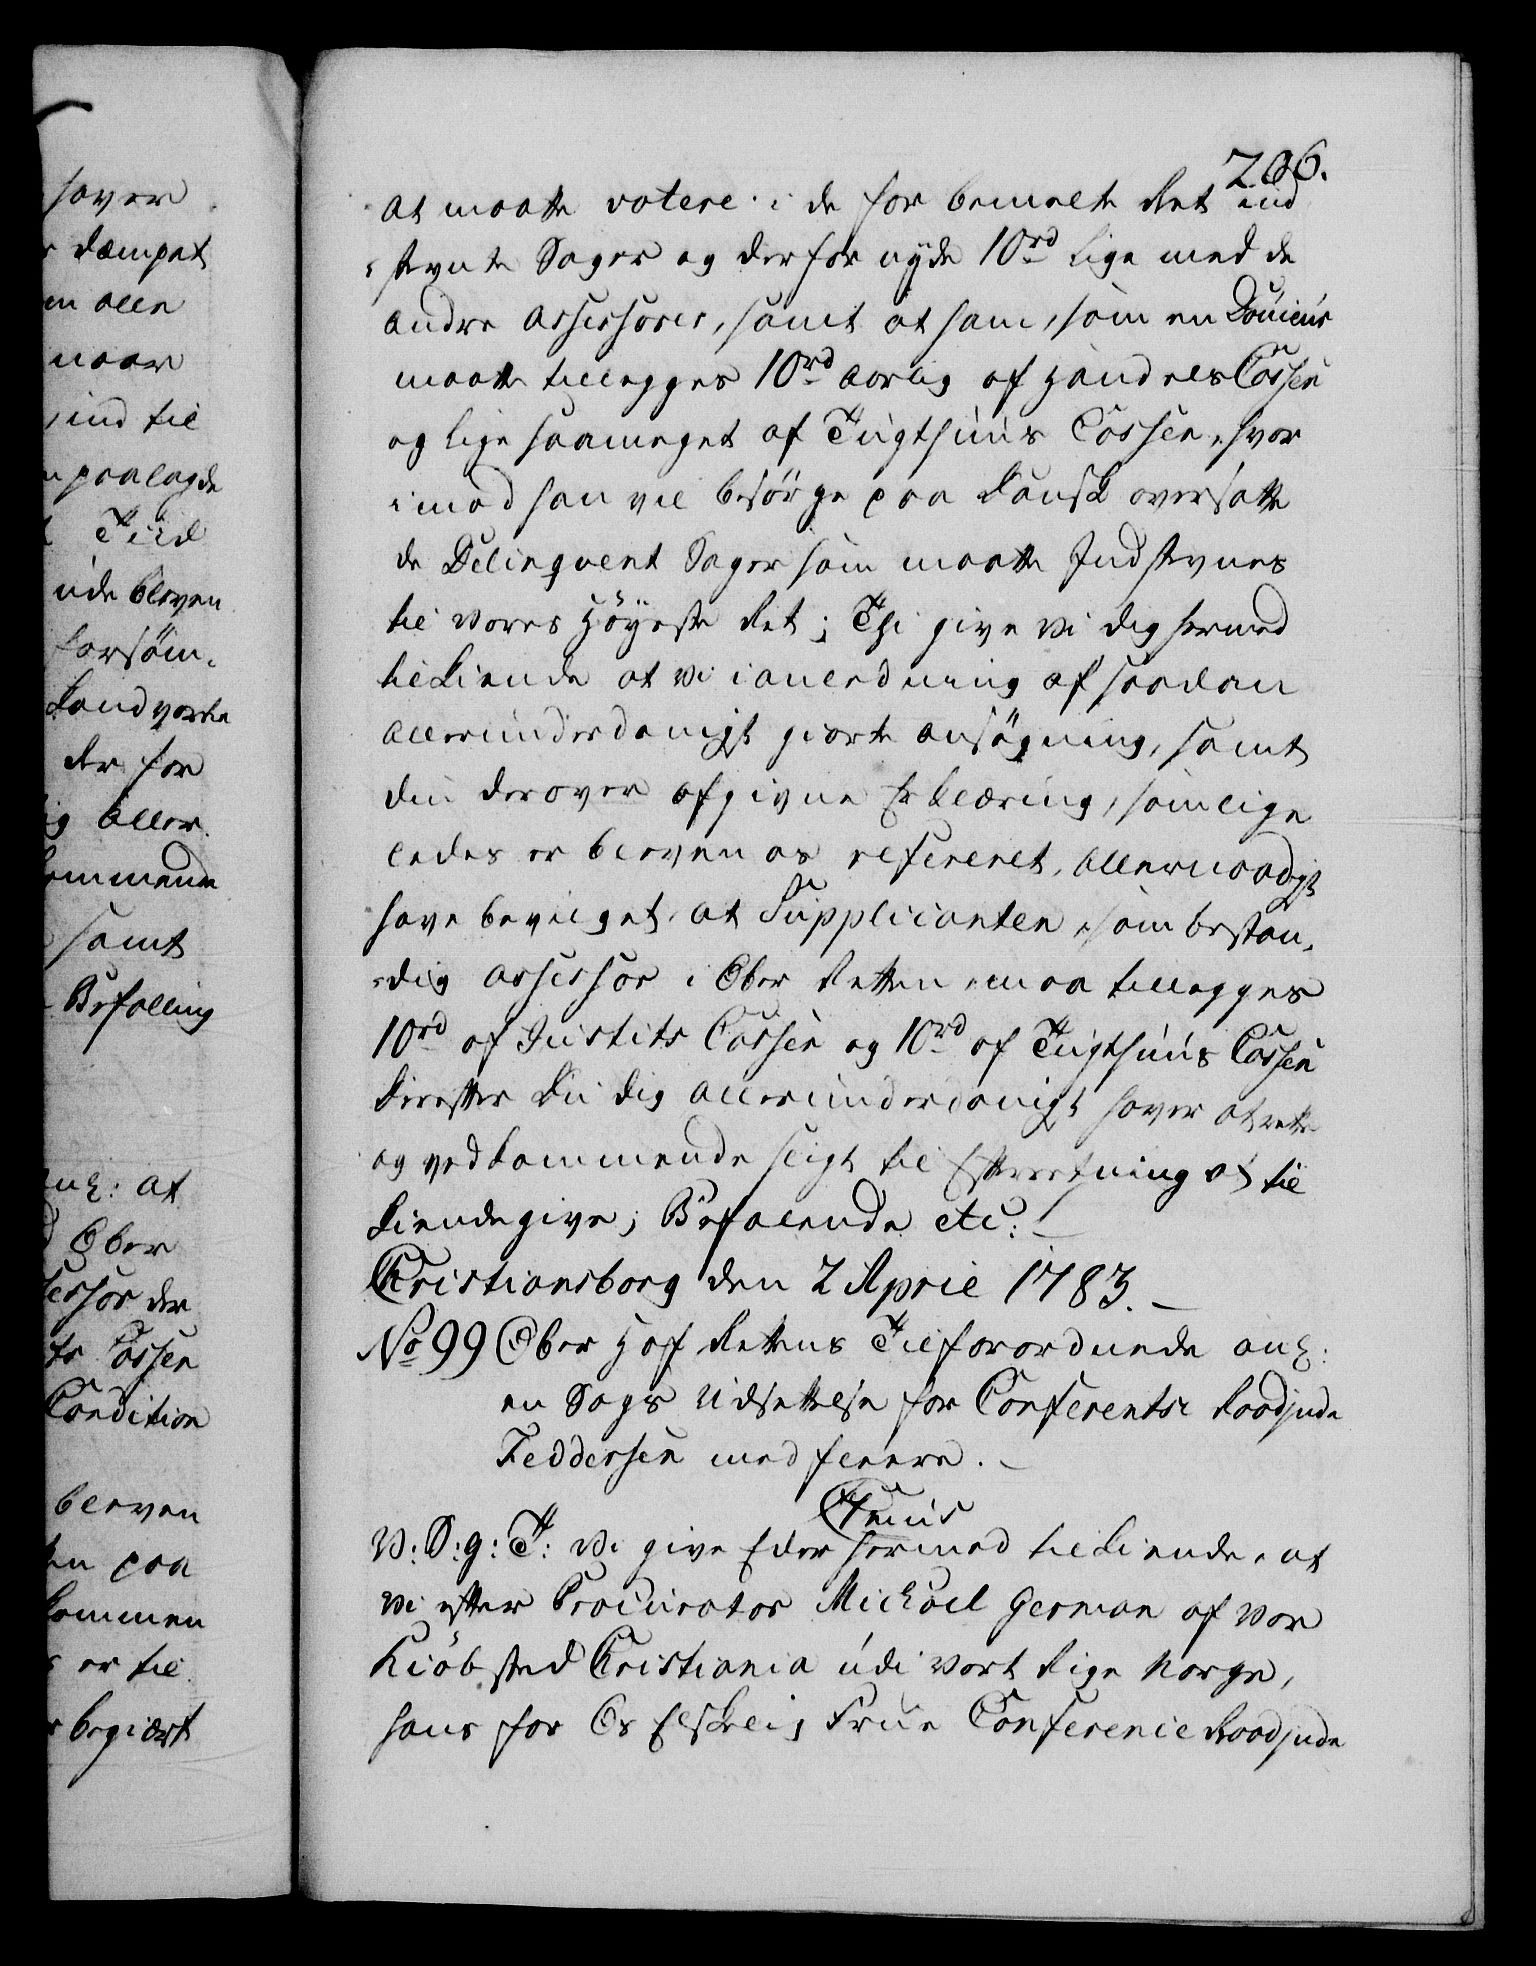 206.
at maatte votere i de for bemelte Ret ind
stevnte Sager og derfor nyde 10rd lige med de
andre Assessores, samt at ham, som en Douceur
maatte tillegges 10rd aarlig af Handels Cassen
og lige saameget af Tugthuus Cassen, hvor
imod han vil besørge paa Dansk oversatte
de Delinqvent Sager som maatte Indstevnes
til Vores Høyeste Ret; Thi give Vi dig hermed
tilkiende at Vi i anledning af saadan
allerunderdanigst giorte ansøgning, samt
din derover afgivne Erklæring, som lige
ledes er bleven os refereret, allernaadigst
have bevilget, at Supplicanten, som bestan-
dig Assessor i Ober Retten, maa tillegges
10rd af Justits Cassen og 10rd af Tugthuus Cassen
Derefter Du dig allerunderdanigst haver at rette
og vedkommende sligt til Efterretning at til
kiendegive; Befalende etc: /
Christiansborg den 2 April 1783.
No 99 Ober Hof Rettens Tilforordnede anl:
en Sags Udsettelse for Conferentz Raadinde
Feddersen med fleere.
V: S: g: T: Vi give Eder hermed tilkiende, at
Vi efter Procurator Michael German af Vor
Kiøbsted Christiania udi Vort Rige Norge,
hans for Os Elskelig Frue Conference Raadinde
haver
dæmpet
en alle
naar
ind til
paalagde
Tiid
ude bleven
forsøm-
der for
aller-
kommende
samt
Befalling
anl: at
Ober
Assessor der
Cassen
Condition
bleven
paa
kommen
er til
begiært